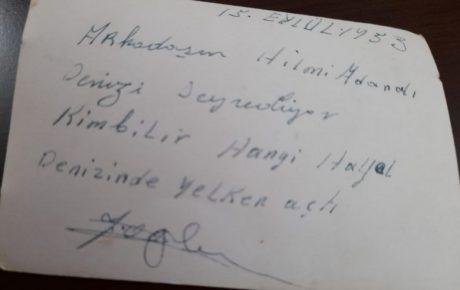 15. EYLÜL 1953
Arkadaşın Hilmi Adanalı
Denizi Seyrediyor
Kimbilir Hangi Hayal
Denizinde yelken açtı